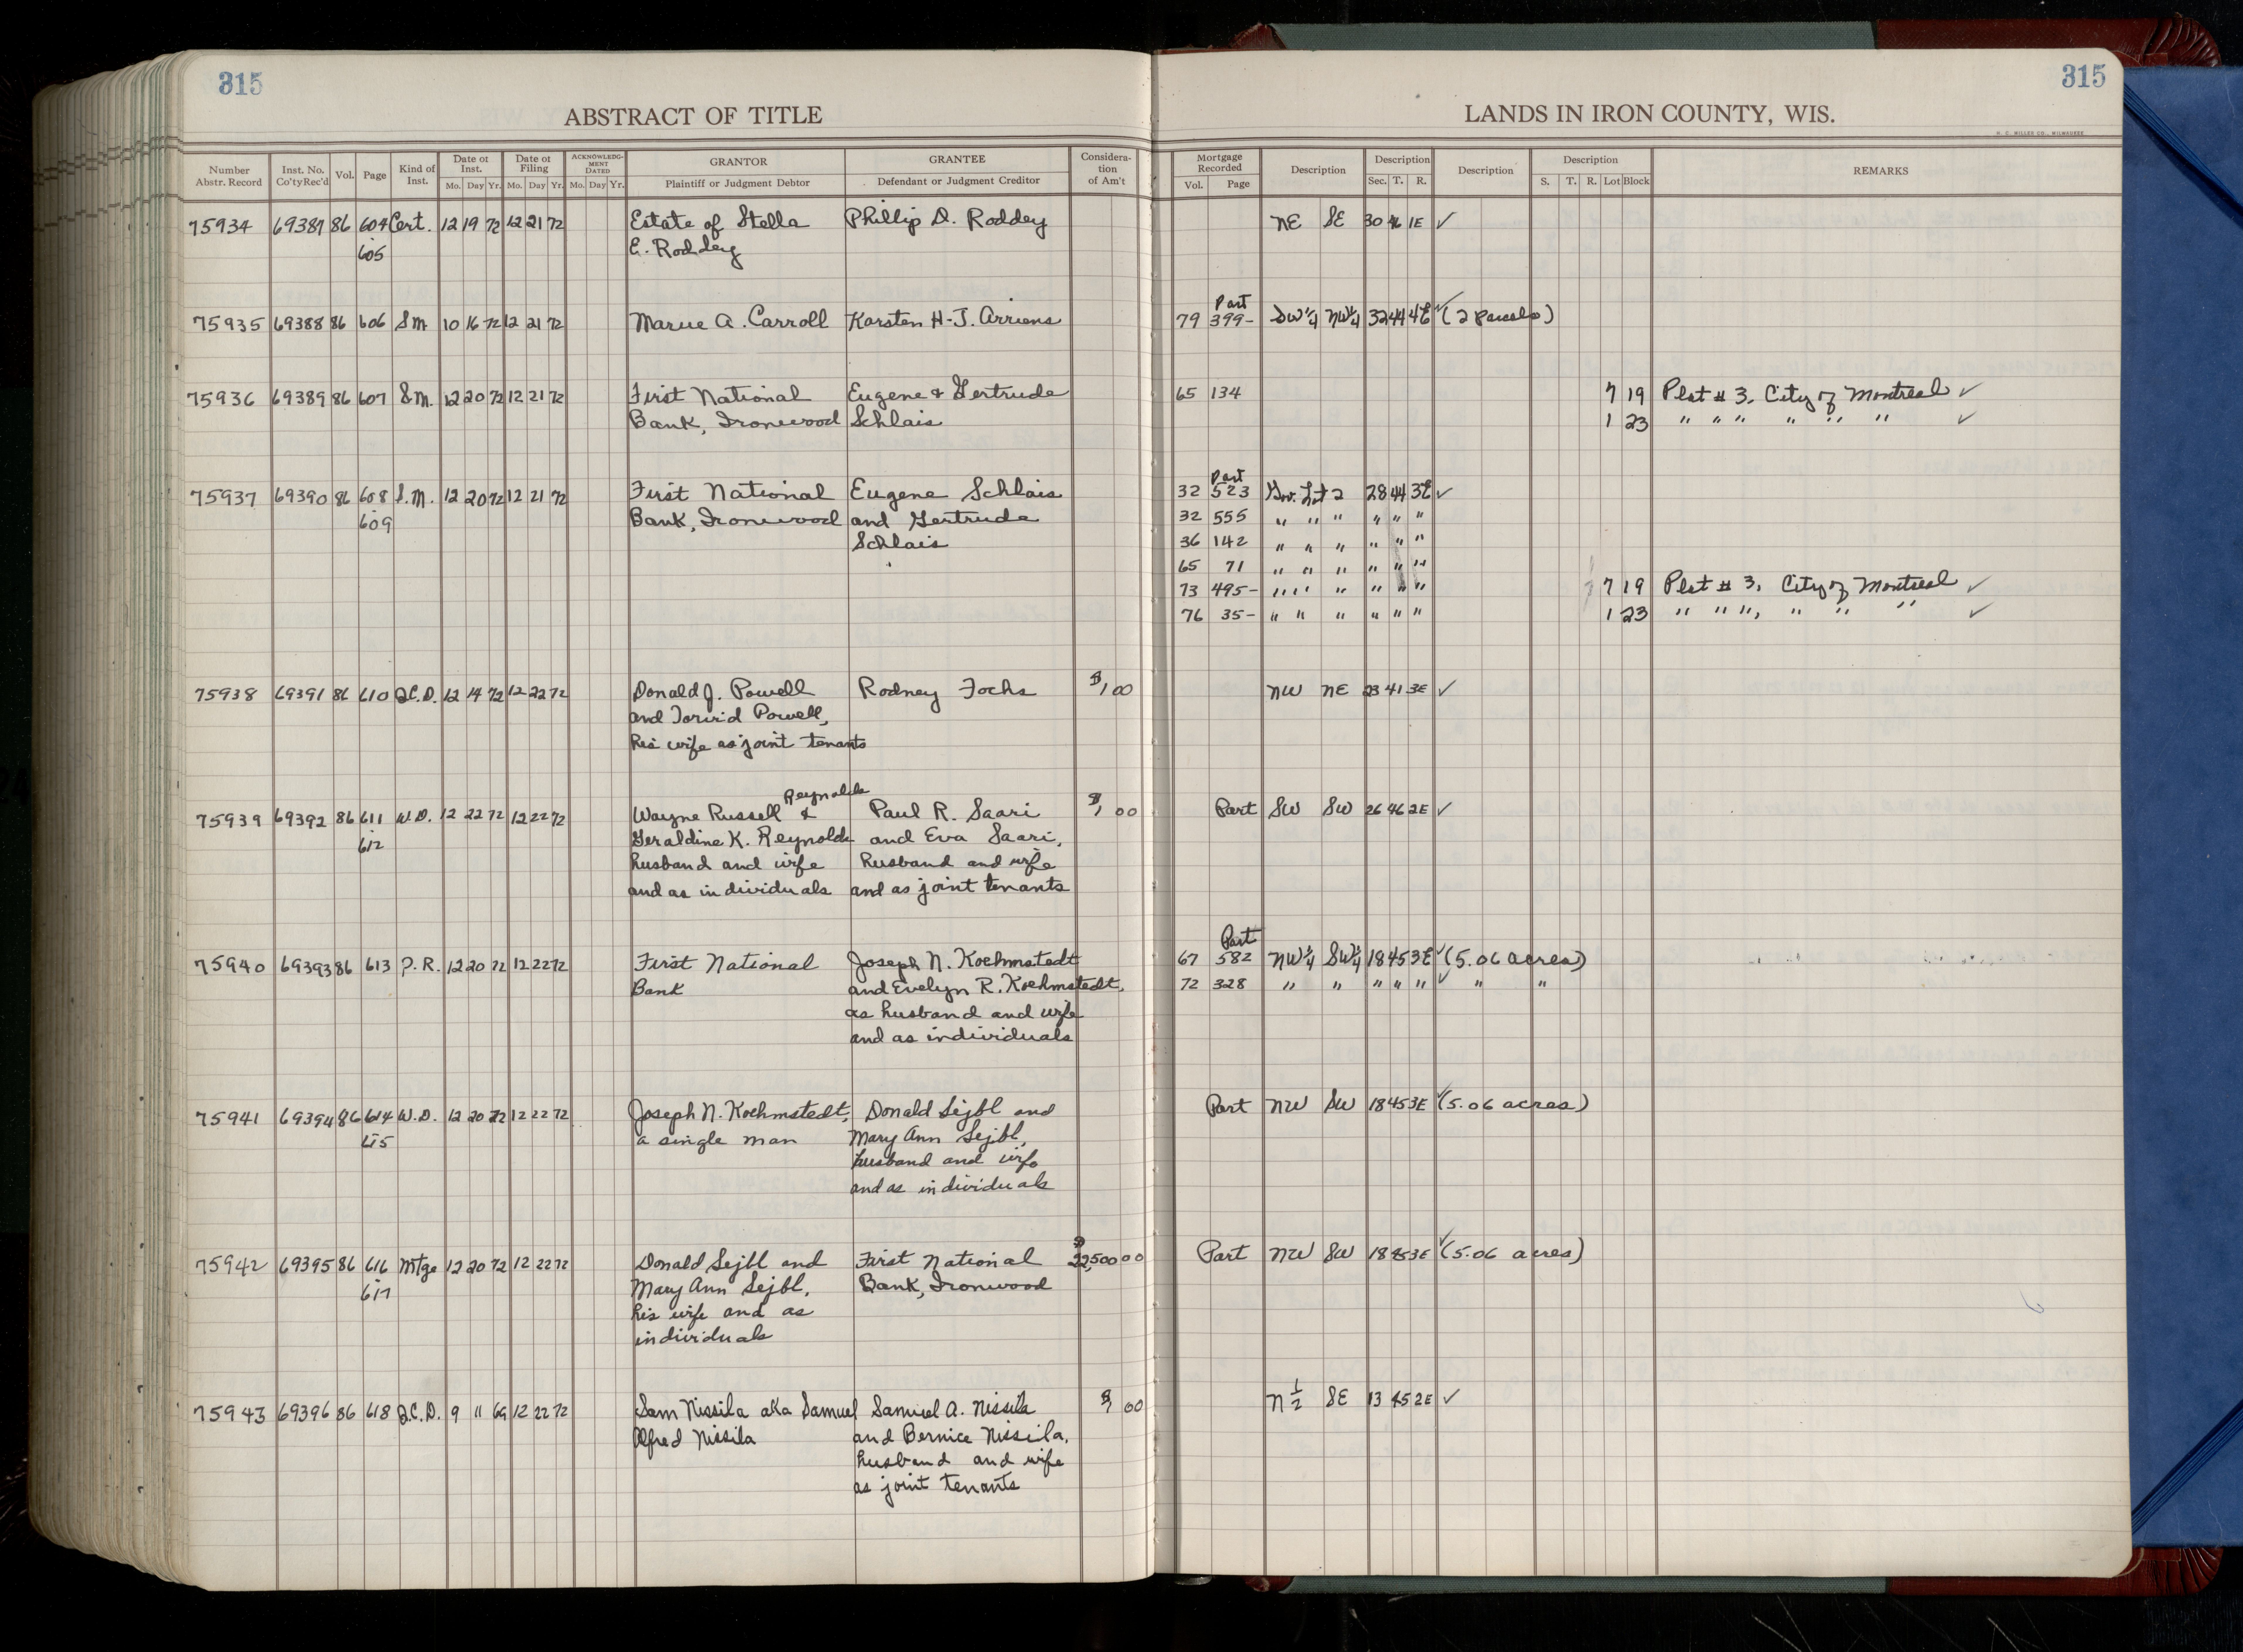 315
315
ABSTRACT OF TITLE
LANDS IN IRON COUNTY, WIS.
H. C. MILLER CO., MILWAUKEE
Number Abstr. Record Inst. No. Co'ty Rec'd Vol. Page Kind of Inst. Date of Inst. Mo. Day Yr. Date of Filing Mo. Day Yr. ACKNOWLEDGMENT DATED Mo. Day Yr. GRANTOR Plaintiff or Judgment Debtor GRANTEE Defendant or Judgment Creditor Consideration of Am't Mortgage Recorded Vol. Page Description Description Sec. T. R. Description Description S. T. R. Lot Block REMARKS
75934 69387 86 604 Cert. 12 19 72 12 21 72 Estate of Stella Phillip D. Roddey NE SE 30 46 1E ✓
605 E. Roddey
Part
75935 69388 86 606 S.M. 10 16 72 12 21 72 Marue A. Carroll Karsten H-J. Arriens 79 399- SW¼ NW¼ 32 44 4E ✓ (2 Parcels)
75936 69389 86 607 S.M. 12 20 72 12 21 72 First National Eugene & Gertrude 65 134 7 19 Plat # 3, City of Montreal ✓
Bank, Ironwood Schlais 1 23 " " " " " " ✓
Part
75937 69390 86 608 S.M. 12 20 72 12 21 72 First National Eugene Schlais 32 523 Gov. Lot 2 28 44 3E ✓
609 Bank, Ironwood and Gertrude 32 555 " " " " " "
Schlais 36 142 " " " " " "
65 71 " " " " " "
73 495- " " " " " " 7 19 Plat # 3, City of Montreal ✓
76 35- " " " " " " 1 23 " " ", " " " ✓
75938 69391 86 610 Q.C.D. 12 14 72 12 22 72 Donald J. Powell Rodney Fochs $1 00 NW NE 23 41 3E ✓
and Torvid Powell,
his wife as joint tenants
Reynolds
75939 69392 86 611 W.D. 12 22 72 12 22 72 Wayne Russell & Paul R. Saari $1 00 Part SW SW 26 46 2E ✓
612 Geraldine K. Reynolds and Eva Saari,
husband and wife husband and wife
and as individuals and as joint tenants
Part
75940 69393 86 613 P.R. 12 20 72 12 22 72 First National Joseph N. Koehmstedt 67 582 NW¼ SW¼ 18 45 3E ✓ (5.06 acres)
Bank and Evelyn R. Koehmstedt, 72 328 " " " " " ✓ " "
as husband and wife
and as individuals
75941 69394 86 614 W.D. 12 20 72 12 22 72 Joseph N. Koehmstedt, Donald Sejbl and Part NW SW 18 45 3E ✓ (5.06 acres)
615 a single man Mary Ann Sejbl,
husband and wife
and as individuals
75942 69395 86 616 Mtge 12 20 72 12 22 72 Donald Sejbl and First National $22,500 00 Part NW SW 18 45 3E ✓ (5.06 acres)
617 Mary Ann Sejbl, Bank, Ironwood
his wife and as
individuals
75943 69396 86 618 Q.C.D. 9 11 69 12 22 72 Sam Nissila aka Samuel Samuel A. Nissila $1 00 N½ SE 13 45 2E ✓
Alfred Nissila and Bernice Nissila,
husband and wife
as joint tenants